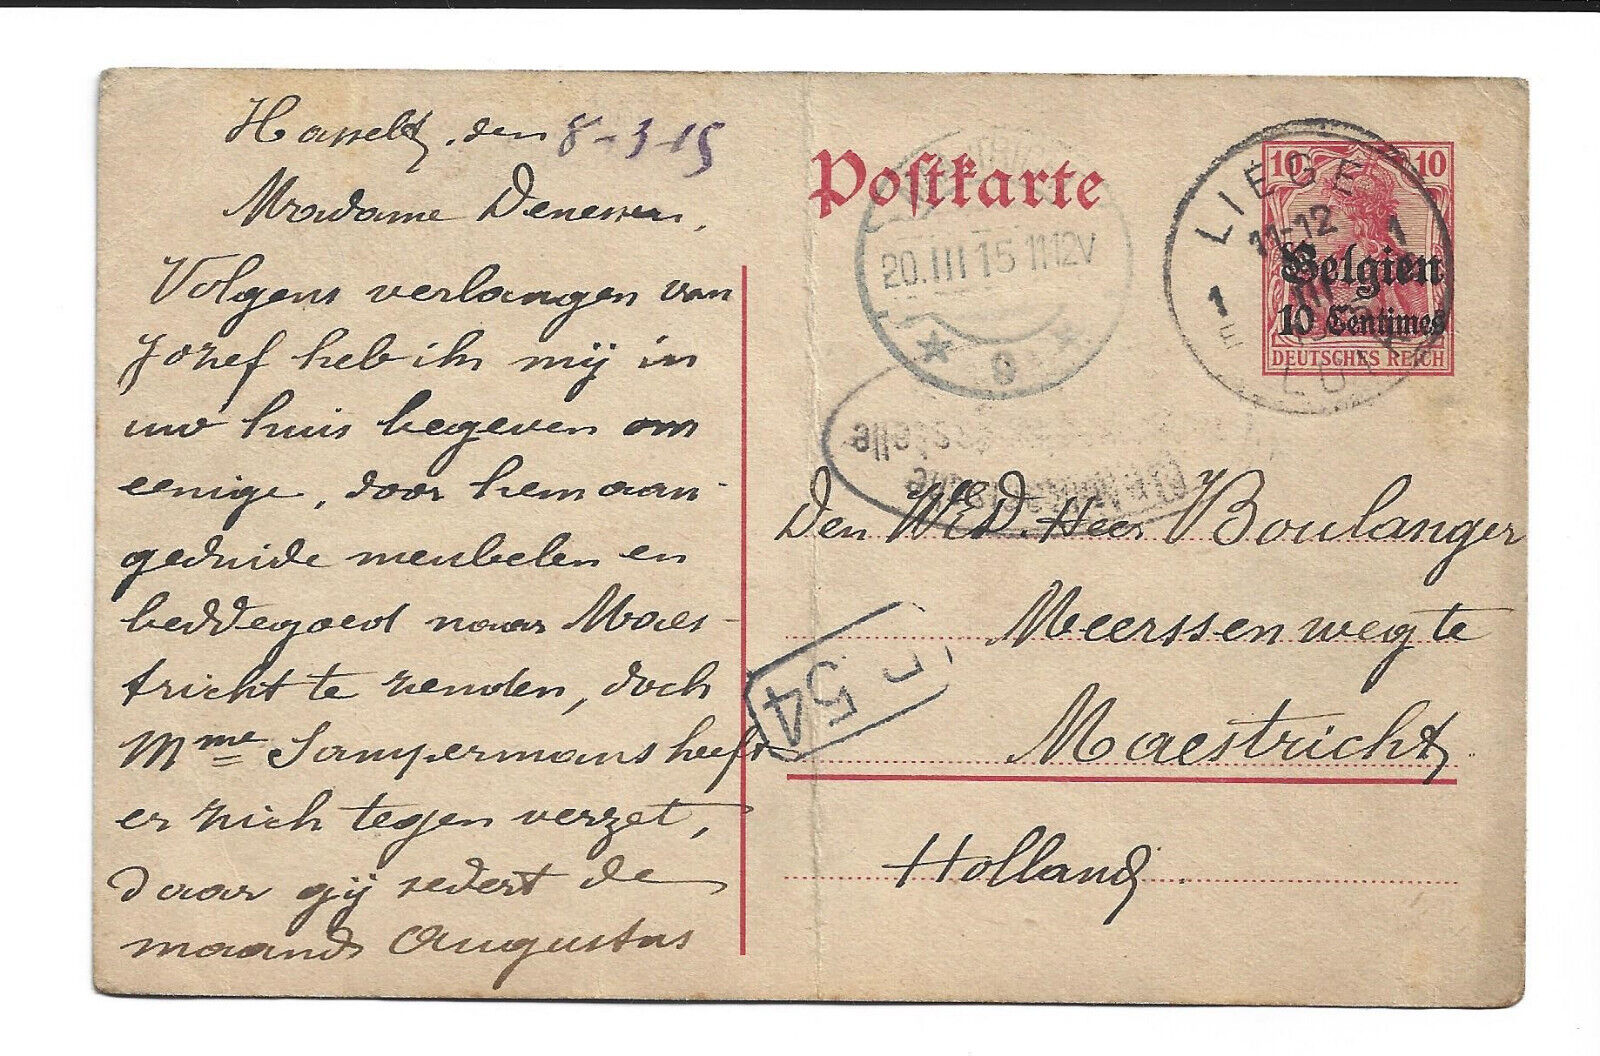 Hasselt, den 8-3-15
Madame Denesen,
Volgens verlangen van
Jozef heb ik mij in
uw huis begeven om
eenige, door hem aan-
geduide meubelen en
beddegoed naar Maes-
tricht te zenden, doch
Mme Sampermans heeft
er zich tegen verzet,
daar gij sedert de
maand Augustus
Postkarte
20.III 15 11-12V
9
LIÉGE
11-12
1 1
E
LUIK
10 10
Belgien
10 Centimes
DEUTSCHES REICH
Den WED. Heer Boulanger
Meerssenweg te
Maestricht
Holland.
54